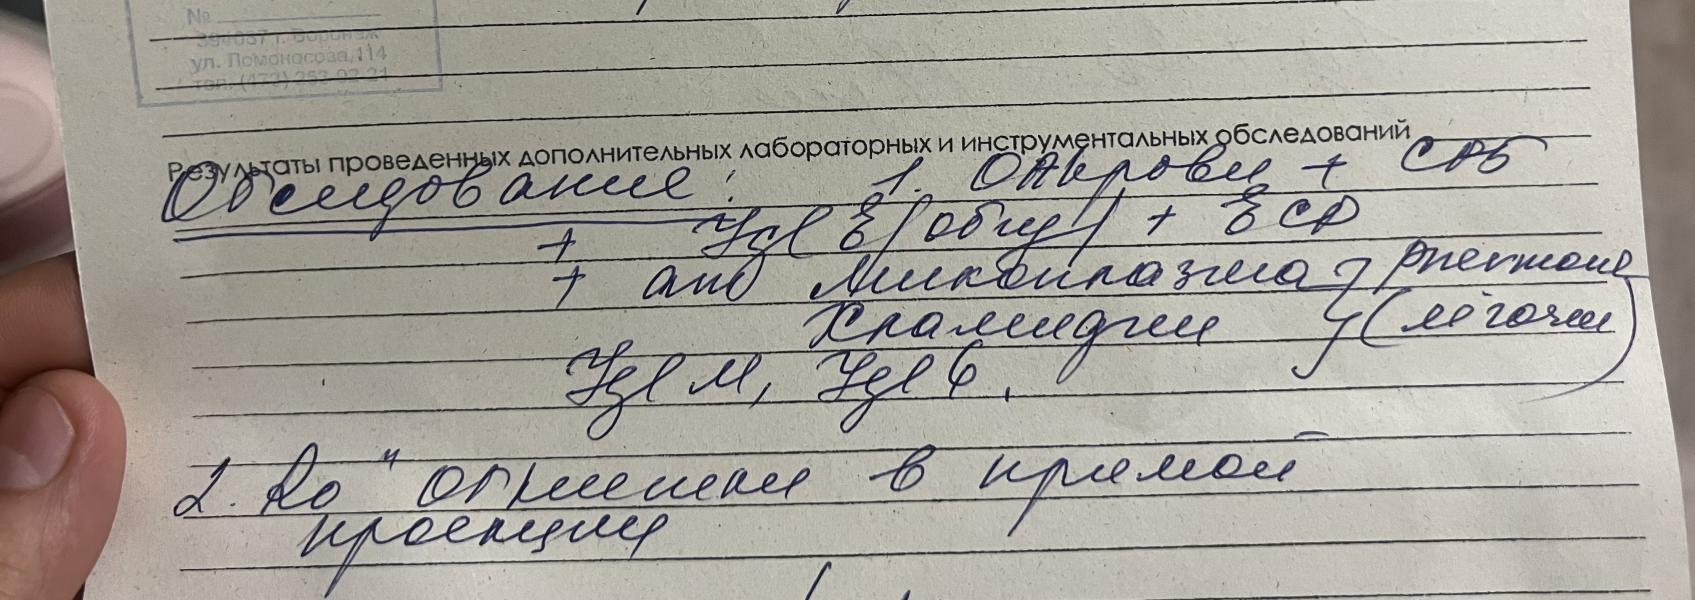 №
394087 г. Воронеж
ул. Ломоносова, 114
тел. (473) 253-93-21
Результаты проведенных дополнительных лабораторных и инструментальных обследований
Обследование: 1. ОАКрови +
+ IgE (общ) + ECP
+ Микоплазма pneumoni
Хламидии (лёгочн)
IgM, IgG.
2. Ro" ОГК в прямой
проекции